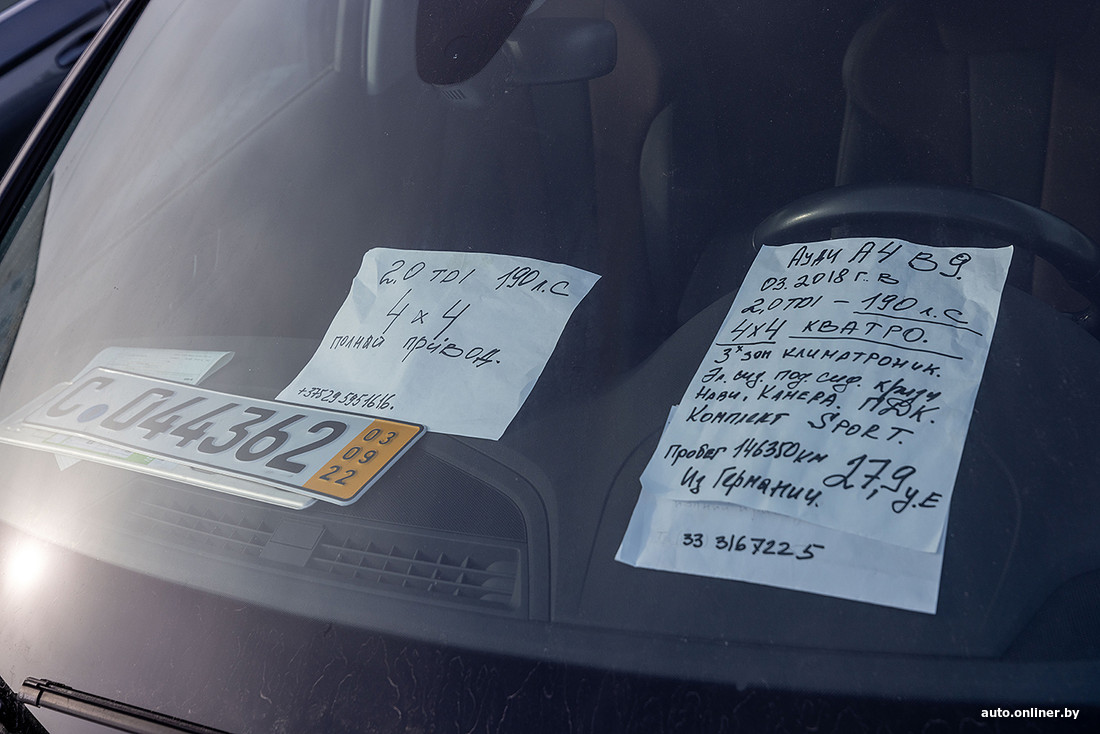 2,0 TDI 190 л.С
4 x 4
полный привод.
+375295951616.
С. 044362
03
09
22
Ауди А4 В9
03.2018 Г.В
2,0 TDI – 190 л.С
4x4 КВАТРО.
3х зон климатроник.
Эл. сид. под. сид. круиз
Нави. Камера. ПДК.
Комплект SPORT.
Пробег 146350 км
Из Германии.
27,9 у.Е
33 3167225
auto.onliner.by